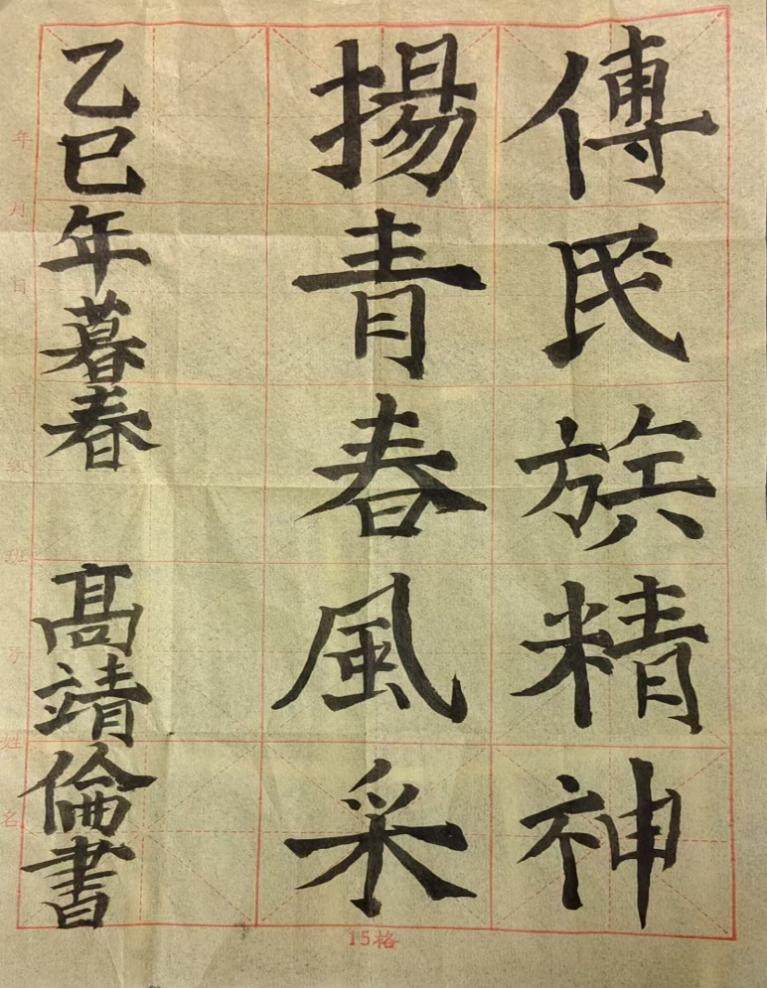 傳民族精神
揚青春風采
乙巳年暮春 高靖倫書
年月日年級班子姓名
15格